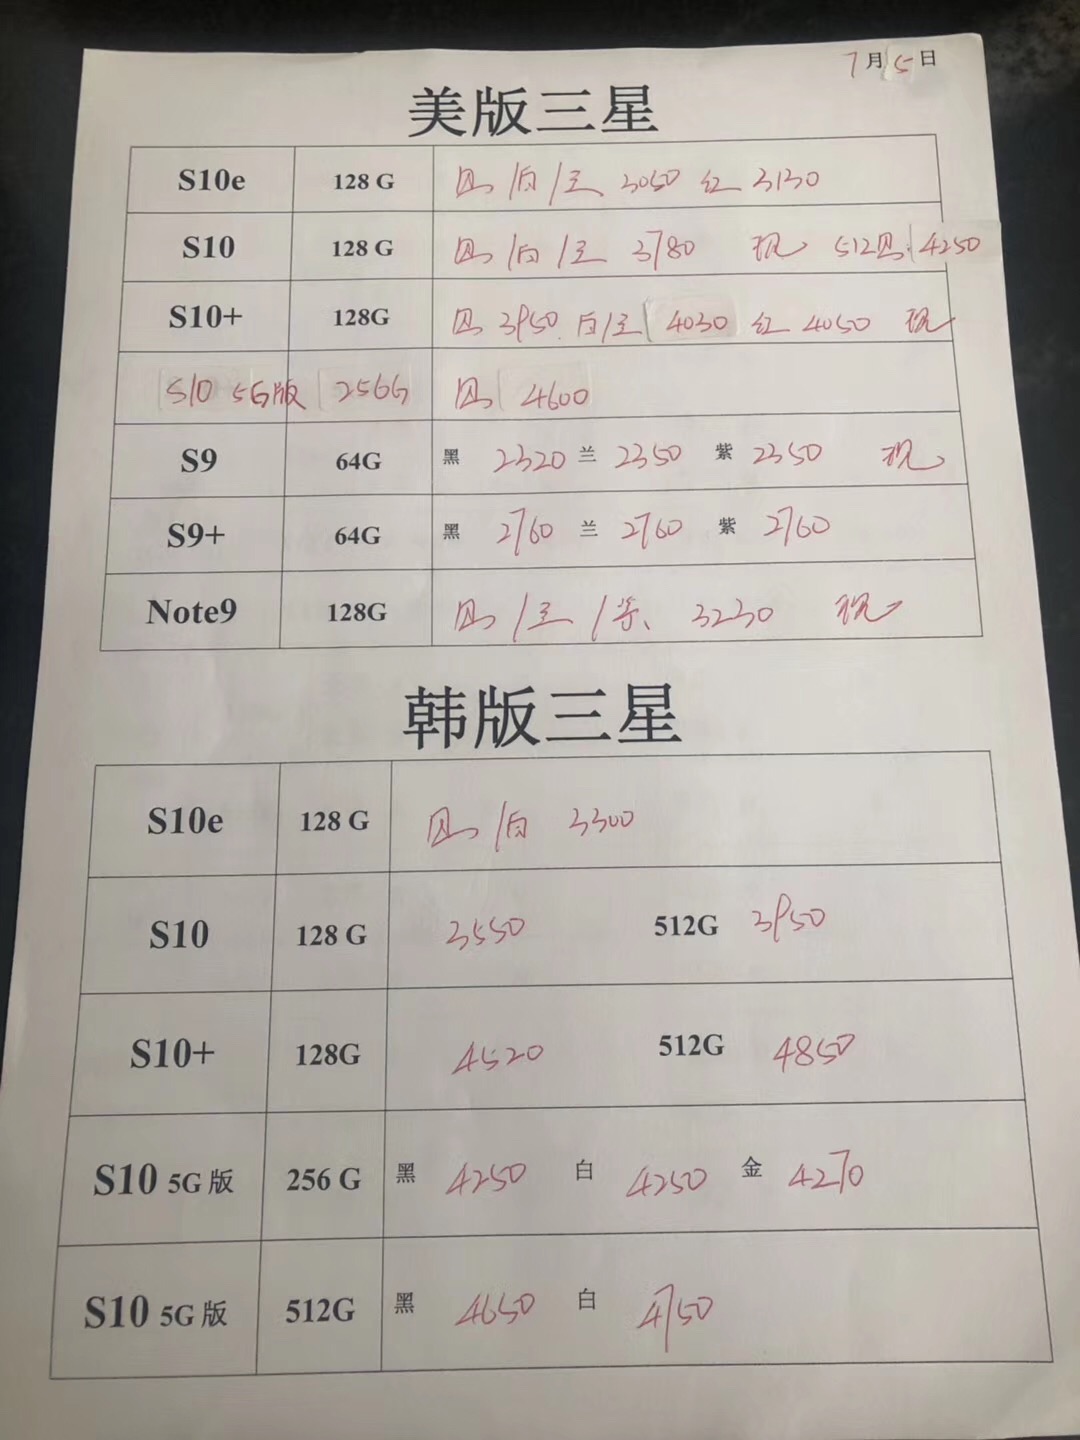 7月5日
美版三星
S10e 128 G 黑/白/兰 3050 红 3130
S10 128 G 黑/白/兰 3780 现 512黑 4250
S10+ 128G 黑 3950 白/兰 4030 红 4050 现
S10 5G版 256G 黑 4600
S9 64G 黑 2320 兰 2350 紫 2350 现
S9+ 64G 黑 2760 兰 2760 紫 2760
Note9 128G 黑/兰/紫 3230 现
韩版三星
S10e 128 G 黑/白 3300
S10 128 G 3550 512G 3950
S10+ 128G 4520 512G 4850
S10 5G版 256 G 黑 4250 白 4250 金 4270
S10 5G版 512G 黑 4650 白 4750